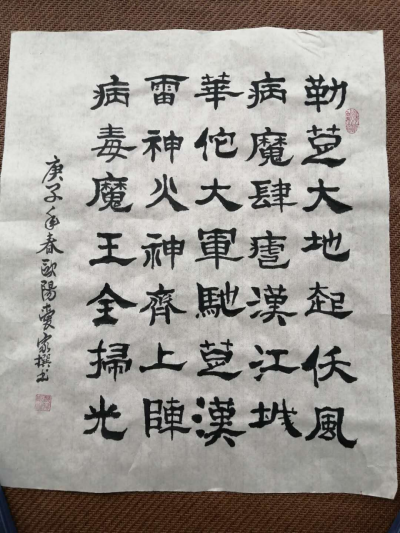 荊楚大地起妖風
病魔肆虐漢江城
華佗大軍馳楚漢
雷神火神齊上陣
病毒魔王全掃光
庚子年春歐陽愛家撰书